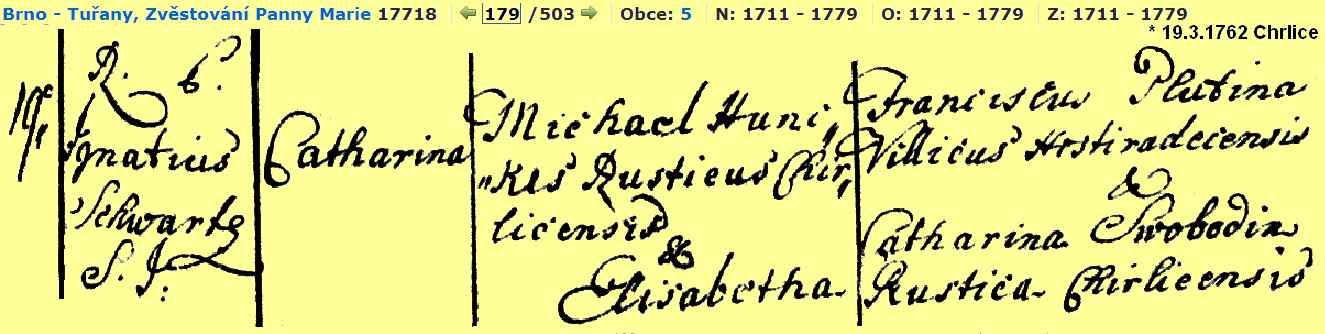 Brno - Tuřany, Zvěstování Panny Marie 17718 179 /503 Obce: 5 N: 1711 - 1779 O: 1711 - 1779 Z: 1711 - 1779
* 19.3.1762 Chrlice
19
R. P.
Ignatius
Schwartz
S. J:
Catharina
Michael Huni,
"kes Rusticus Chir,
licensis
&
Elisabetha.
Franciscus Plutina
Villicus Hostiradecensis
&
Catharina Swobodin
Rustica Chirlicensis